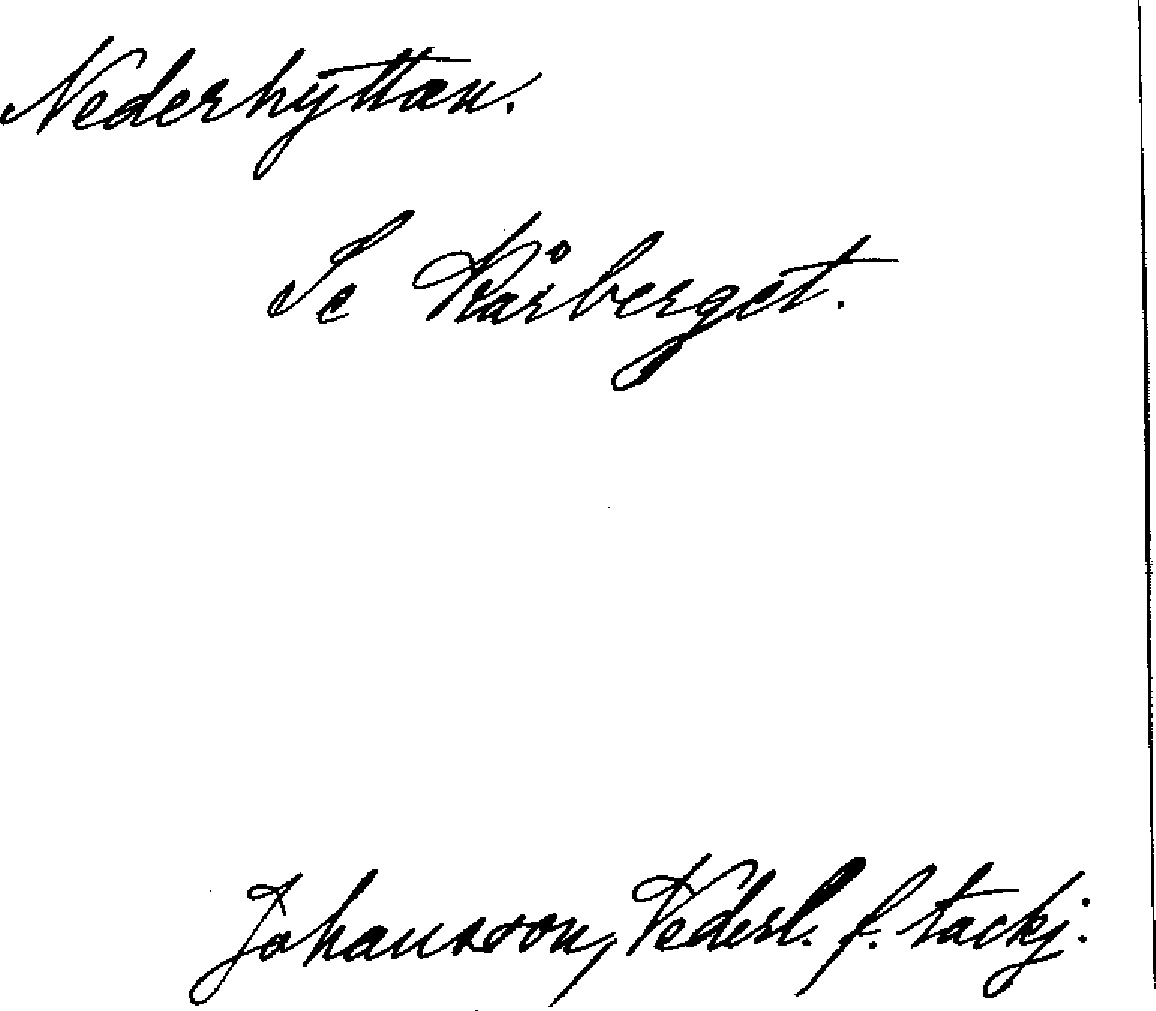 Nederhyttan.
Se Kårberget.
Johansson, Vederl. f. tackj.